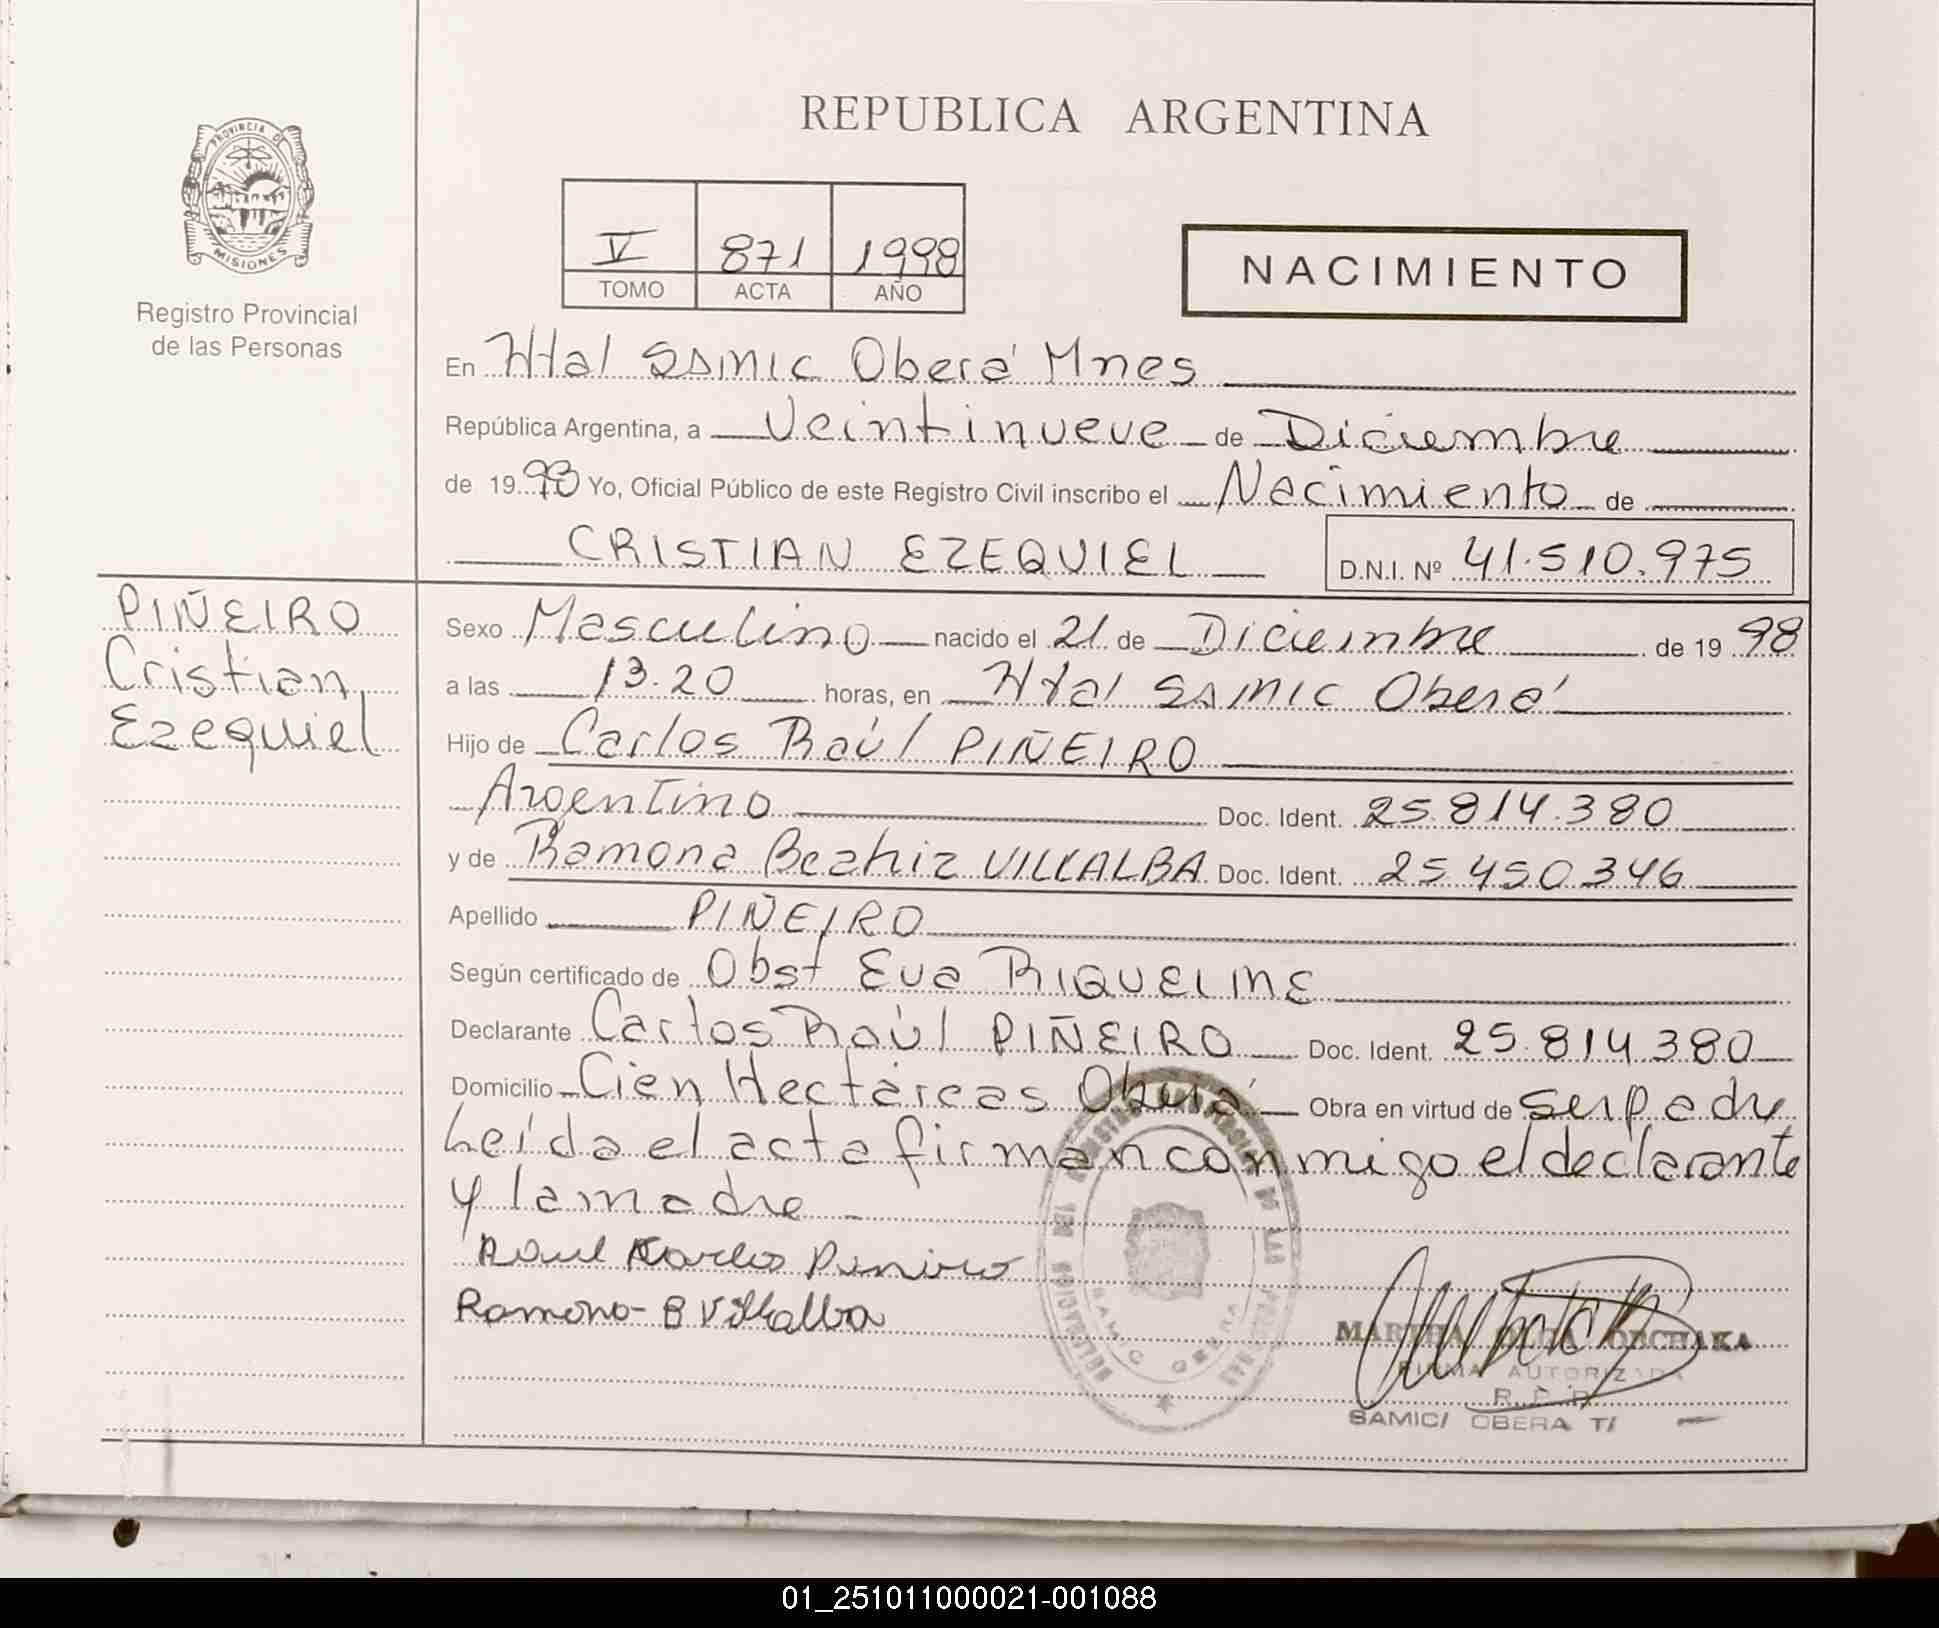 REPUBLICA ARGENTINA
PROVINCIA DE
MISIONES
Registro Provincial
de las Personas
V 871 1998
TOMO ACTA AÑO
NACIMIENTO
En Htal SAMIC Oberá Mnes
República Argentina, a Veintinueve de Diciembre
de 1998 Yo, Oficial Público de este Registro Civil inscribo el Nacimiento de
CRISTIAN EZEQUIEL D.N.I. Nº 41.510.975
PIÑEIRO
Cristian
Ezequiel
Sexo Masculino nacido el 21 de Diciembre de 19 98
a las 13.20 horas, en Htal SAMIC Oberá
Hijo de Carlos Raúl PIÑEIRO
Argentino Doc. Ident. 25.814.380
y de Ramona Beatriz VILLALBA Doc. Ident. 25.450.346
Apellido PIÑEIRO
Según certificado de Obst Eva RIQUELME
Declarante Carlos Raúl PIÑEIRO Doc. Ident. 25.814.380
Domicilio Cien Hectáreas Oberá Obra en virtud de ser padre
Leída el acta firman conmigo el declarante
y la madre
Raul Carlos Piniero
Ramona B Villalba
SAMIC OBERA
MARTHA OLGA OBCHAKA
FIRMA AUTORIZADA
R. P. P.
SAMIC/ OBERA T/
01_251011000021-001088